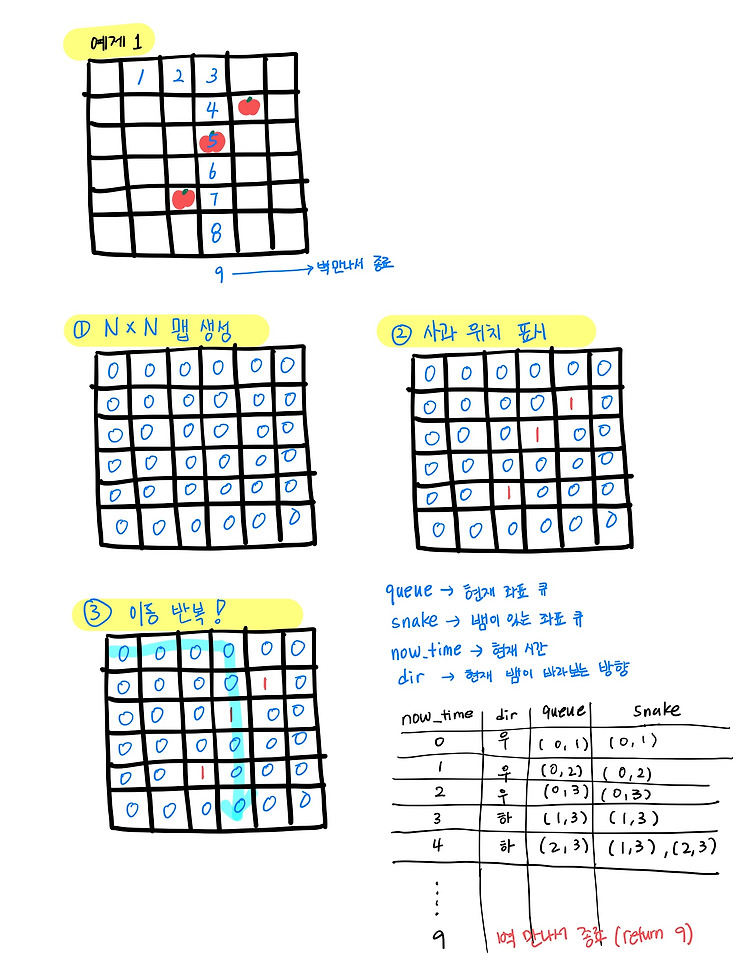 예제 1
1 2 3
4
5
6
7
8
9 → 벽만나서 종료
① N×N 맵 생성
0 0 0 0 0 0
0 0 0 0 0 0
0 0 0 0 0 0
0 0 0 0 0 0
0 0 0 0 0 0
0 0 0 0 0 0
② 사과 위치 표시
0 0 0 0 0 0
0 0 0 0 1 0
0 0 0 1 0 0
0 0 0 0 0 0
0 0 1 0 0 0
0 0 0 0 0 0
③ 이동 반복!
0 0 0 0 0 0
0 0 0 0 1 0
0 0 0 1 0 0
0 0 0 0 0 0
0 0 1 0 0 0
0 0 0 0 0 0
queue → 현재 좌표 큐
snake → 뱀이 있는 좌표 큐
now_time → 현재 시간
dir → 현재 뱀이 바라보는 방향
now_time dir queue snake
0 우 (0,1) (0,1)
1 우 (0,2) (0,2)
2 우 (0,3) (0,3)
3 하 (1,3) (1,3)
4 하 (2,3) (1,3),(2,3)
9 벽 만나서 종료 (return 9)